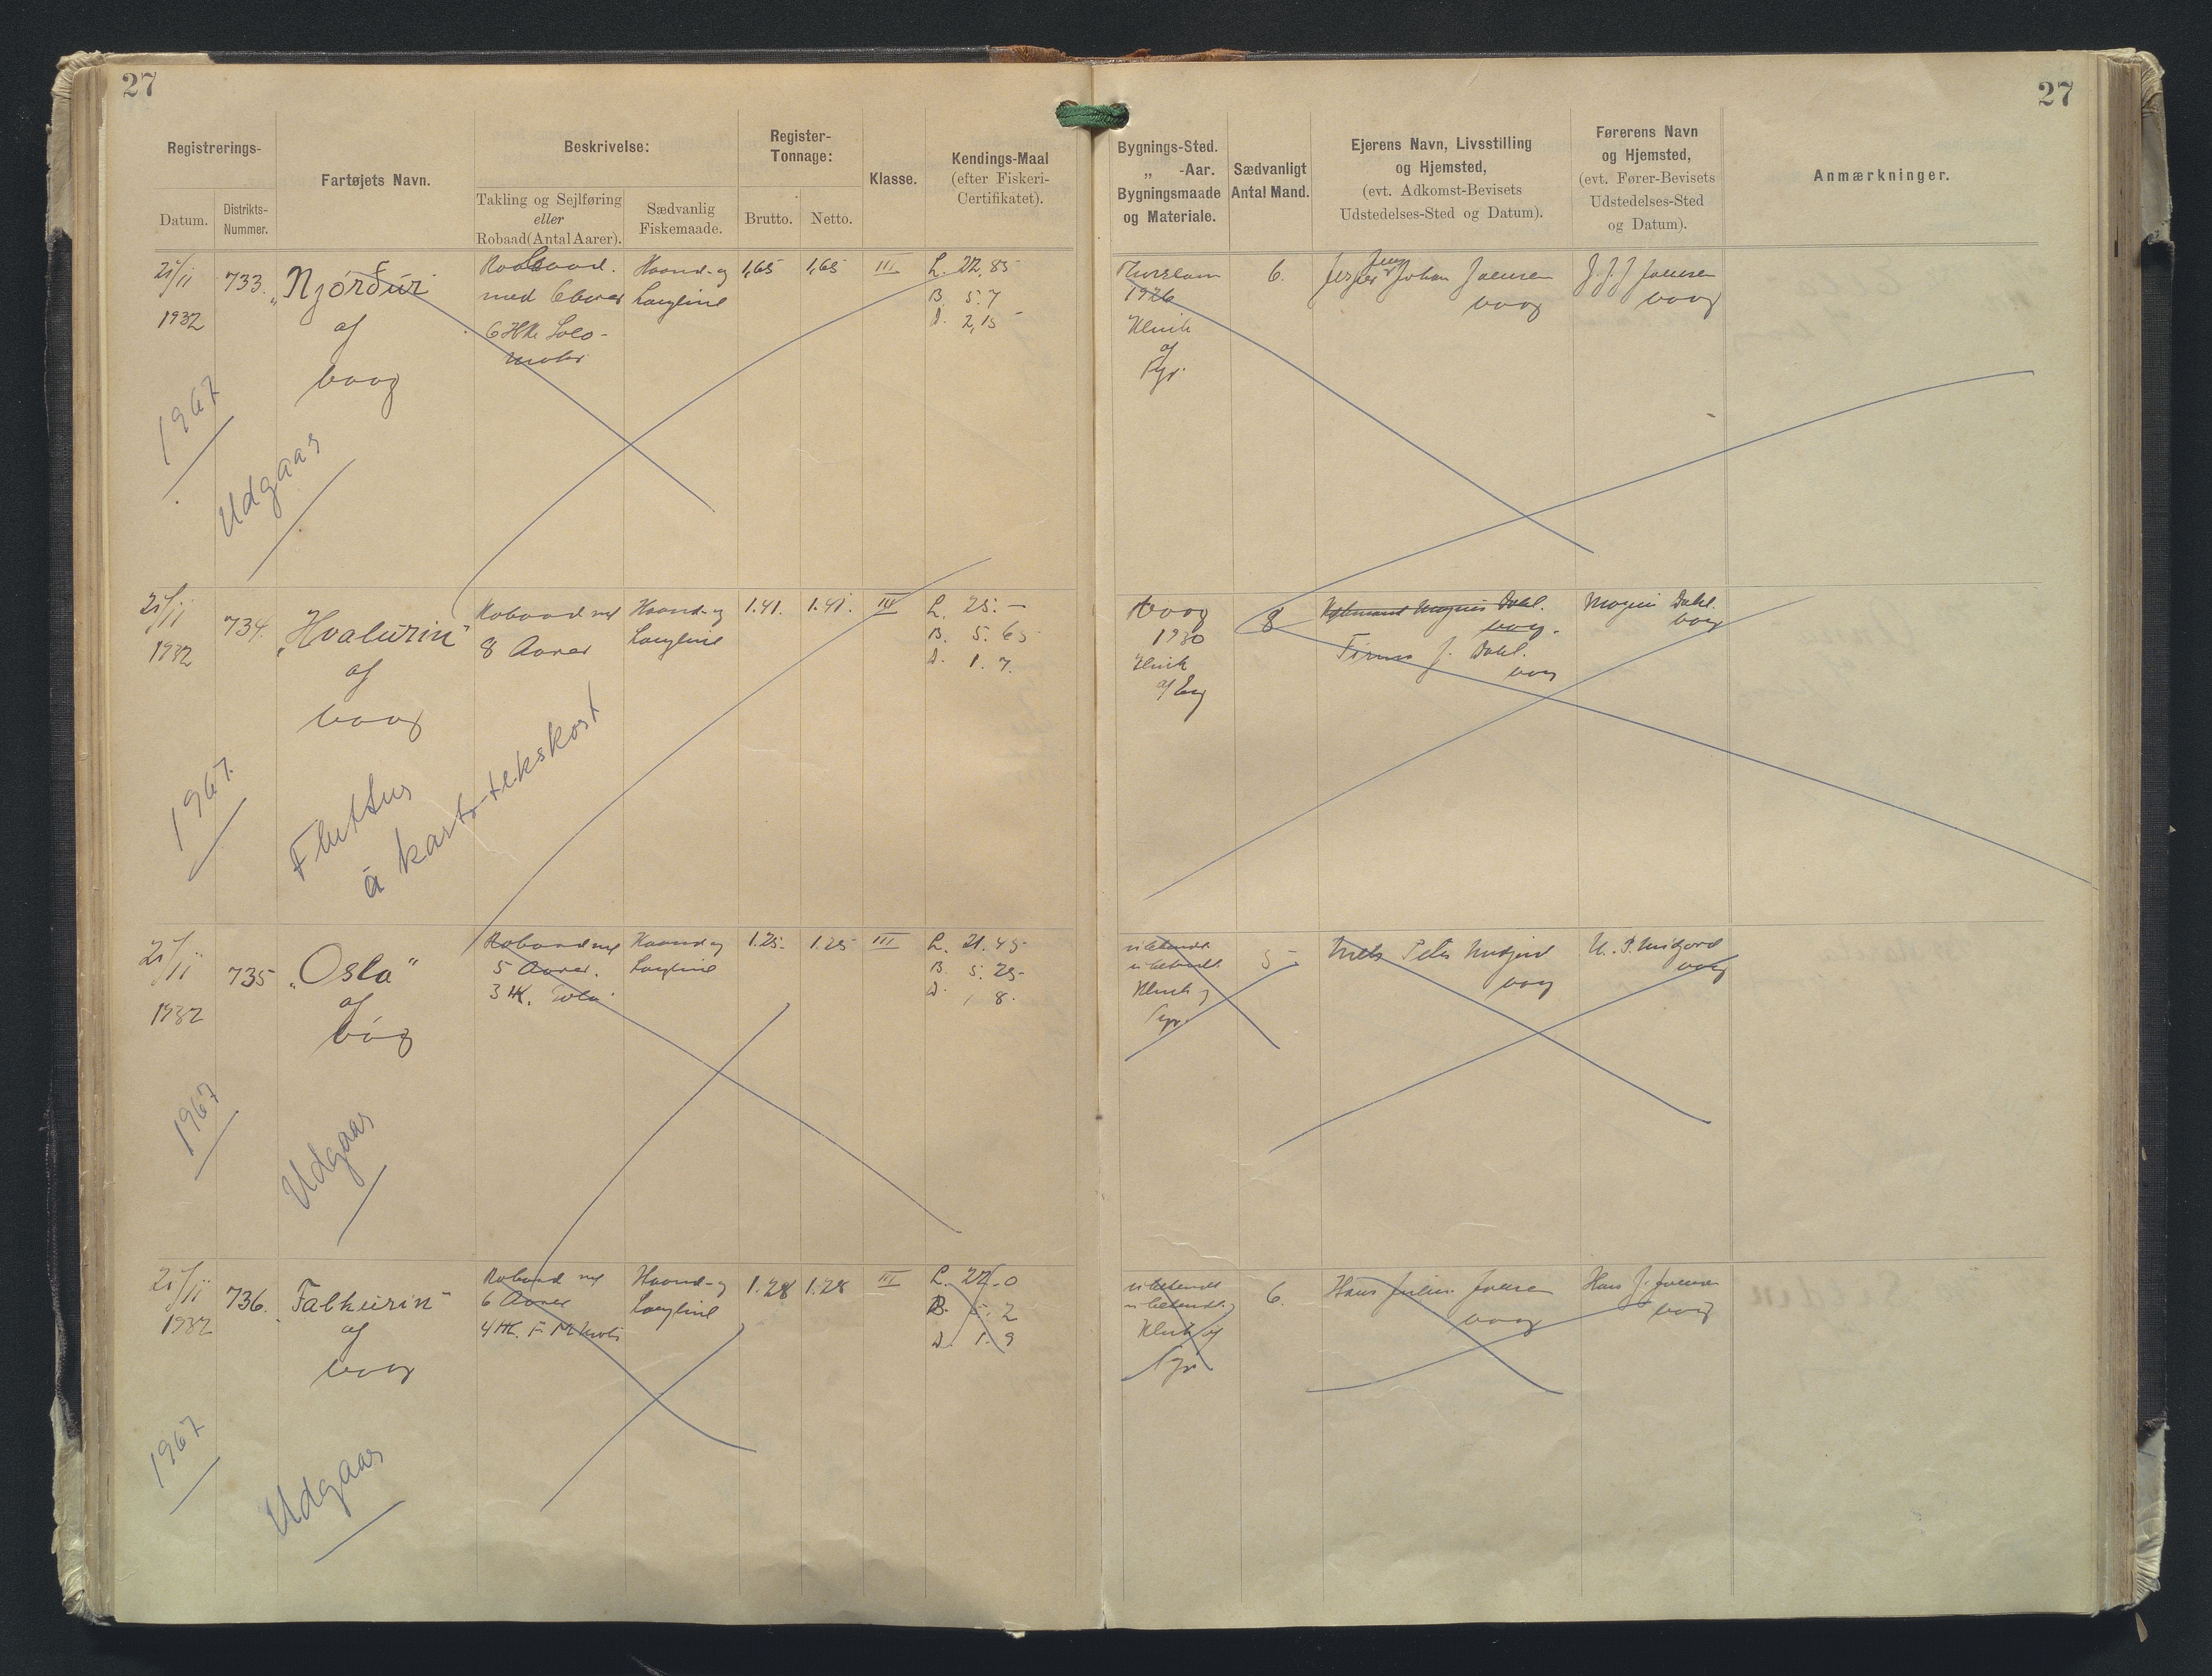 27
27
Registrerings-
Datum.
Distrikts-
Nummer.
Fartøjets Navn.
Beskrivelse:
Takling og Sejlføring
eller
Robaad (Antal Aarer).
Sædvanlig
Fiskemaade.
Register-
Tonnage:
Brutto.
Netto.
Klasse.
Kendings-Maal
(efter Fiskeri-
Certifikatet).
Bygnings-Sted.
„ -Aar.
Bygningsmaade
og Materiale.
Sædvanligt
Antal Mand.
Ejerens Navn, Livsstilling
og Hjemsted,
(evt. Adkomst-Bevisets
Udstedelses-Sted og Datum).
Førerens Navn
og Hjemsted,
(evt. Fører-Bevisets
Udstedelses-Sted
og Datum).
Anmærkninger.
25/11
1932
733.
„Njórður
af
Vaag
Robaad
med 6 Aarer
6 HK Solo-
motor
Haand- og
Langline
1,65
1,65
III
L. 22.85
B. 5.7
D. 2,15
1926
Klink
af
Fyr.
6.
Jesper Johan Joensen
Vaag
J. J. J Joensen
Vaag
1967
Udgaar
25/11
1932
734.
„Hvalurin"
af
Vaag
Robaad med
8 Aarer
Haand- og
Langline
1.41.
1.41.
III
L. 25. –
B. 5. 65
D. 1. 7.
Vaag
1930
Klink
af Eg
8
Magnus Dahl.
Vaag.
Firma J. Dahl.
Vaag
Magnus Dahl.
Vaag
1967.
Fluttur
á kartotekskort
25/11
1932
735
„Oslo"
af
Vág
Robaad med
5 Aarer.
3 HK. Solo
Haand og
Langline
1.25.
1.25
III
L. 21.45
B. 5. 25
D. 1. 8.
ubekendt
ubekendt.
Klink af
Fyr.
5
Niels Peter Midjord
Vaag
N. P. Midjord
Vaag
1967
Udgaar
25/11
1932
736.
„Falkurin"
af
Vaag
Robaad med
6 Aarer
4 HK. F M Motor
Haand- og
Langline
1.28
1.28
III
L. 22.0
B. 5. 2
D. 1. 9
ubekendt
ubekendt.
Klink af
Fyr.
6.
Hans Julius Joensen
Vaag
Hans J. Joensen
Vaag
1967
Udgaar